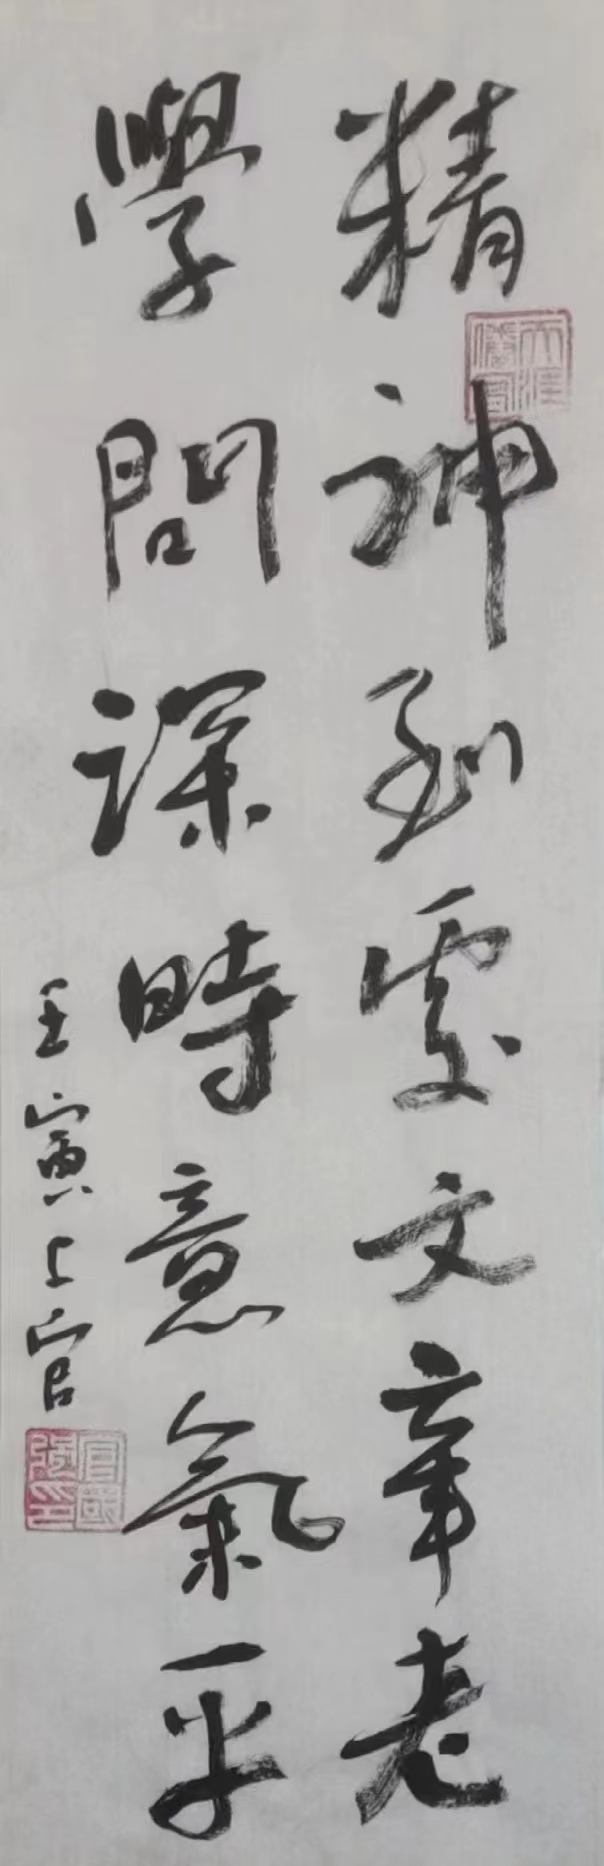 精神到處文章老
學問深時意氣平
壬寅上官